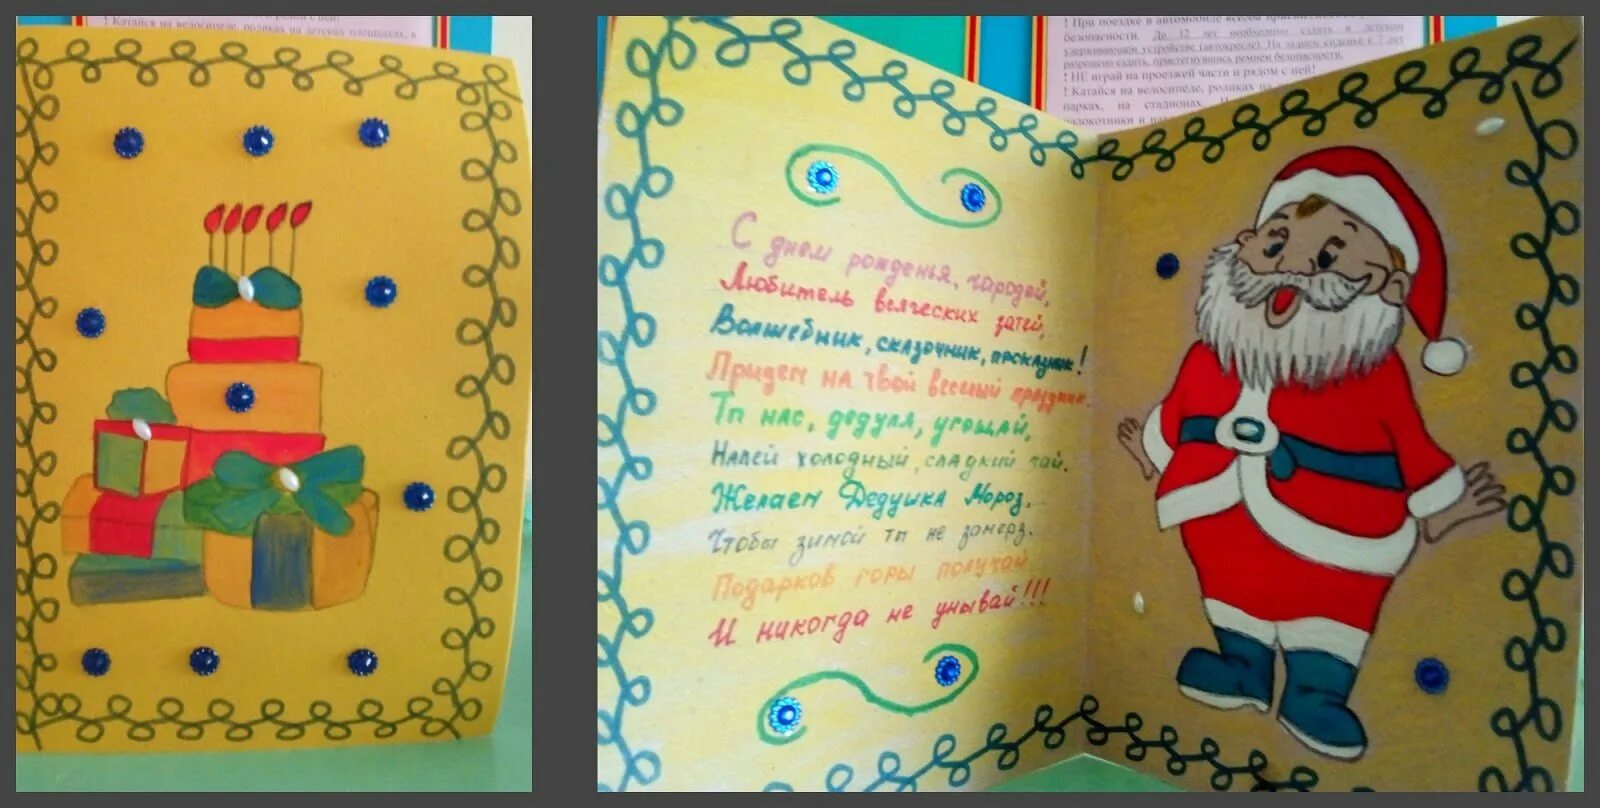 ! Катайся на велосипеде, роликах на детских площадках, в
! При поездке в автомобиле всегда
безопасности. До 12 лет необходимо ездить в детском
удерживающем устройстве (автокресле). На заднем сиденье с 7 лет
разрешено ездить, пристегнувшись ремнем безопасности.
! НЕ играй на проезжей части и рядом с ней!
! Катайся на велосипеде, роликах на
парках, на стадионах.
налокотники и
С днем рожденья, чародей,
Любитель всяческих затей,
Волшебник, сказочник, проказник!
Придем на твой веселый праздник.
Ты нас, дедуля, угощай,
Налей холодный, сладкий чай.
Желаем Дедушка Мороз,
Чтобы зимой ты не замерз.
Подарков горы получай
И никогда не унывай!!!